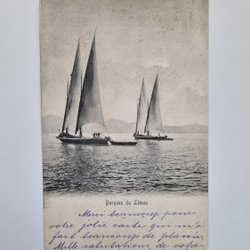 Barques du Léman
Merci beaucoup pour
votre jolie carte qui m'a
fait beaucoup de plaisir.
Mille salutations de votre